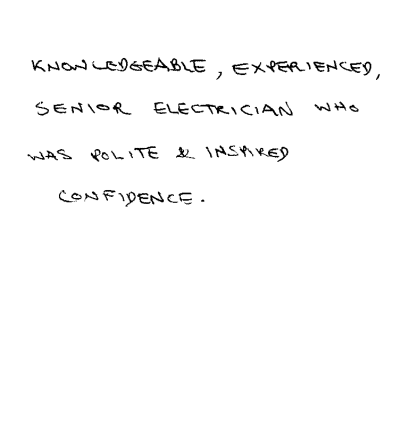 KNOWLEDGEABLE, EXPERIENCED,
SENIOR ELECTRICIAN WHO
WAS POLITE & INSPIRED
CONFIDENCE.